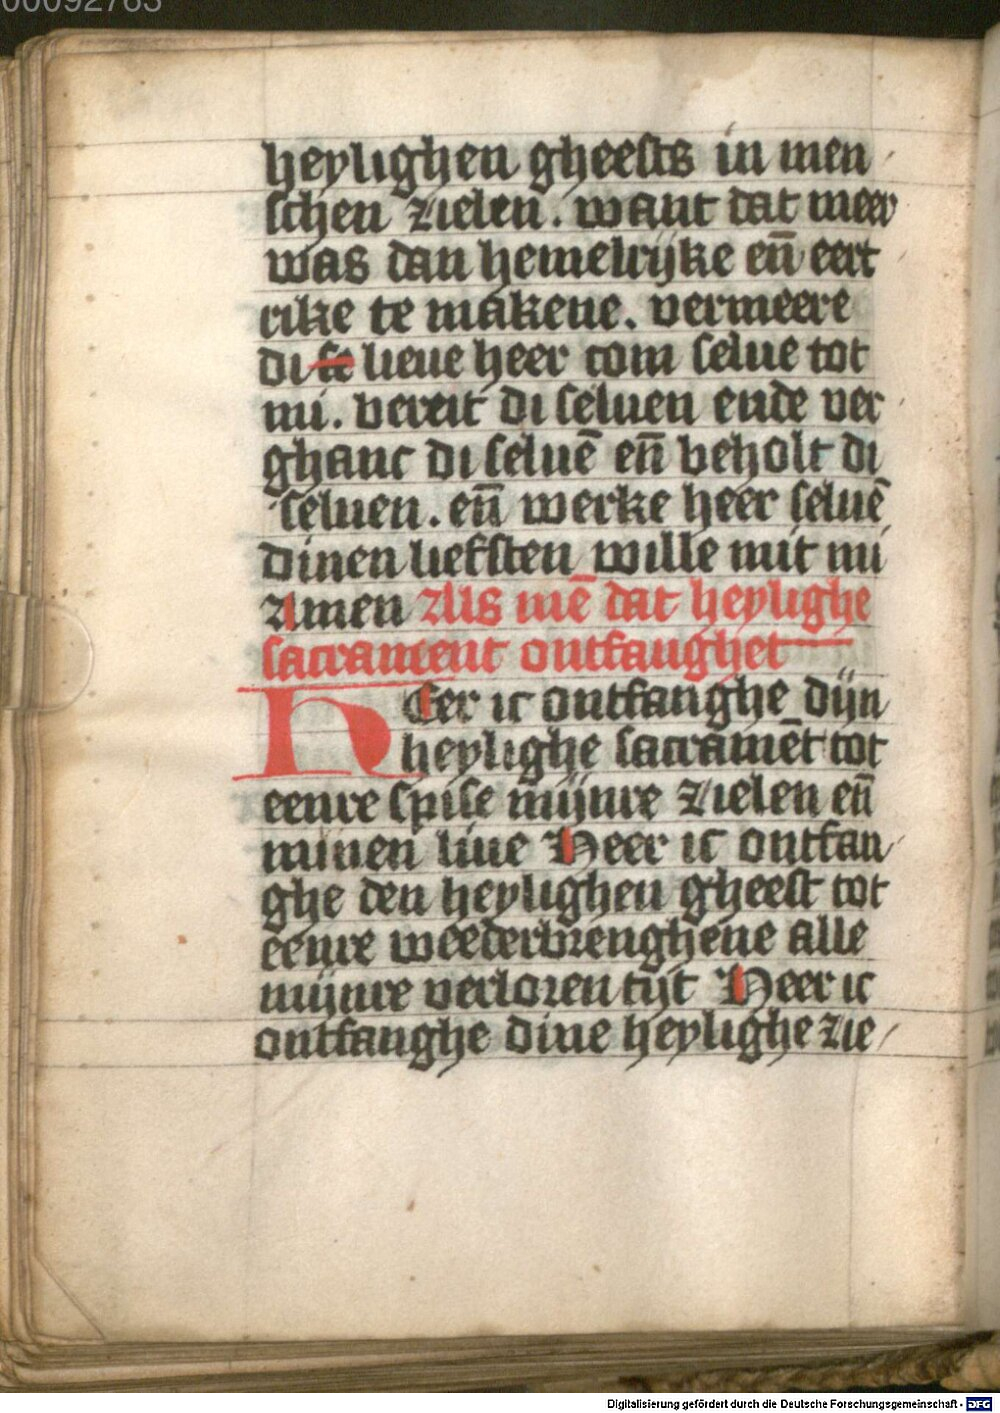 00092783
heylighen gheests in men
schen zielen. want dat meer
was dan hemelrijke en̄ eert
rike te makene. vermeere
di se lieue heer com selue tot
mi. bereit di seluen ende ver
ghanc di seluē en̄ beholt di
seluen. en̄ werke heer seluē
dinen liefsten wille mit mi
Amen Als mē dat heylighe
sacrament ontfanghet
Heer ic ontfanghe dijn
heylighe sacramēt tot
eenre spise mijnre zielen en̄
minen liue Heer ic ontfan
ghe den heylighen gheest tot
eenre weederbrenghene alle
mijnre verloren tijt Heer ic
ontfanghe dine heylighe zie
Digitalisierung gefördert durch die Deutsche Forschungsgemeinschaft - DFG